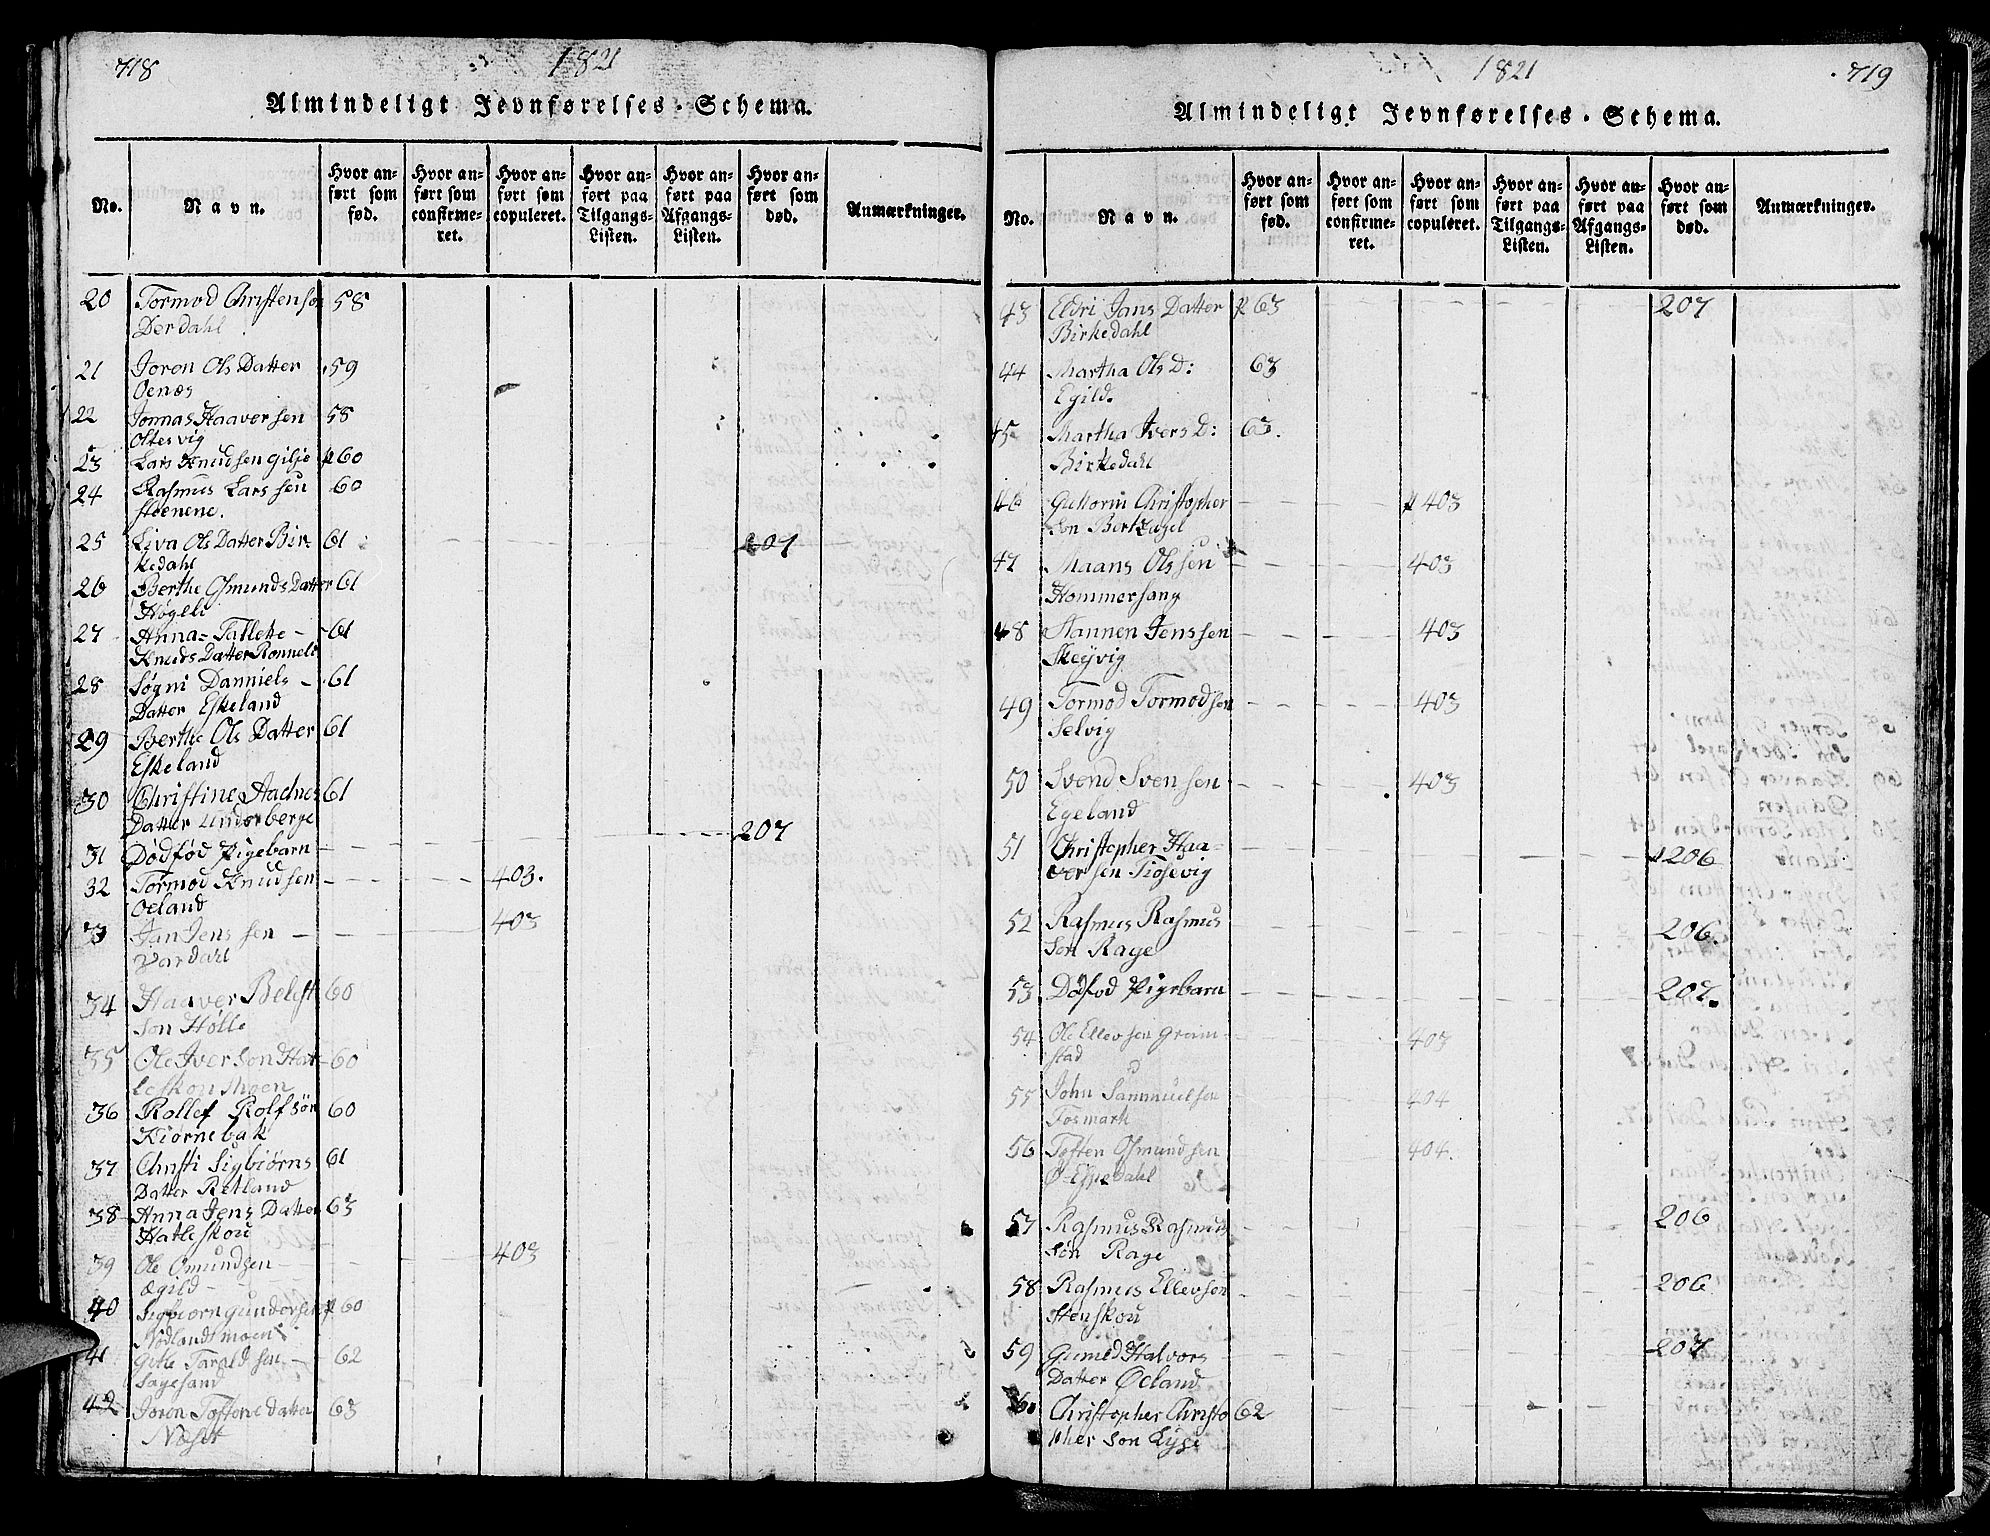 718
1821
Almindeligt Jevnførelses-Schema.
No.
Navn.
Hvor anført som fød.
Hvor anført som confirmeret.
Hvor anført som copuleret.
Hvor anført paa Tilgangs-Listen.
Hvor anført paa Afgangs-Listen.
Hvor anført som død.
Anmærkninger.
20 Tormod Christensøn 58
Derdahl
21 Joron Ols Datter 59
Oenæs
22 Jonnas Haaversen 58
Oltesvig
23 Lars Knudsen Gilje 60
24 Rasmus Larssen 60
Steenene.
25 Liva Ols Datter Bir 61 207
kedahl
26 Berthe Osmunds Datter 61
Høgeli
27 Anna-Tallette- 61
Knuds Datter Ronneli
28 Søgni Danniels- 61
Datter Eskeland
29 Berthe Ols Datter 61
Eskeland
30 Christine Aadnes 61
Datter Underberge
31 Dødfød Pigebarn 207
32 Tormod Knudsen 403.
Oeland
33 Jan Jenssen 403
Vardahl
34 Haaver Belest 60
Søn Hølle
35 Ole Iversøn Hat 60
leskou Moen
36 Rollef Rolfsøn 60
Kiørnebak
37 Christi Sigbiørns 61
Datter Retland
38 Anna Jens Datter 63
Hatleskou
39 Ole Omundsen 403
Ægild
40 Sigbiorn Gundersen 60
Nødlandsmoen
41 Gitle Taraldsen 62
Sagesand
42 Joren Tostene Datter 63
Naset
1821
719
Almindeligt Jevnførelses-Schema.
No.
Navn.
Hvor anført som fød.
Hvor anført som confirmeret.
Hvor anført som copuleret.
Hvor anført paa Tilgangs-Listen.
Hvor anført paa Afgangs-Listen.
Hvor anført som død.
Anmærkninger.
43 Eldri Jans Datter 63 207
Birkedahl
44 Martha Ols D: 63
Egild.
45 Martha Ivers D: 63.
Birkedahl
46 Guttorm Christopher 403
søn Bertzagel
47 Maans Olssen 403
Hommersang
48 Hannen Jenssen 403
Skeÿvig
49 Tormod Tormodsen 403
Selvig
50 Svend Svensen 403
Egeland
51 Christopher Haa- 206
versen Tiosevig
52 Rasmus Rasmus 206.
Søn Rage
53 Dødfød Pigebarn 207.
54 Ole Ellevsen Grøm- 403
stad
55 John Sammuelsen 404
Fosmark
56 Tosten Osmundsen 404.
Ø-Espedahl
57 Rasmus Rasmus 206
Søn Rage
58 Rasmus Ellevsøn 206
Stenskou
59 Gunild Halvors 207
Datter Oeland
60 Christopher Christo 62
pher Søn Lyse